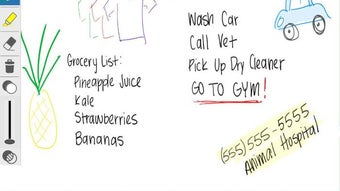 Grocery List:
Pineapple Juice
Kale
Strawberries
Bananas
Wash Car
Call Vet
Pick Up Dry Cleaner
GO TO GYM!
(555)555-5555
Animal Hospital